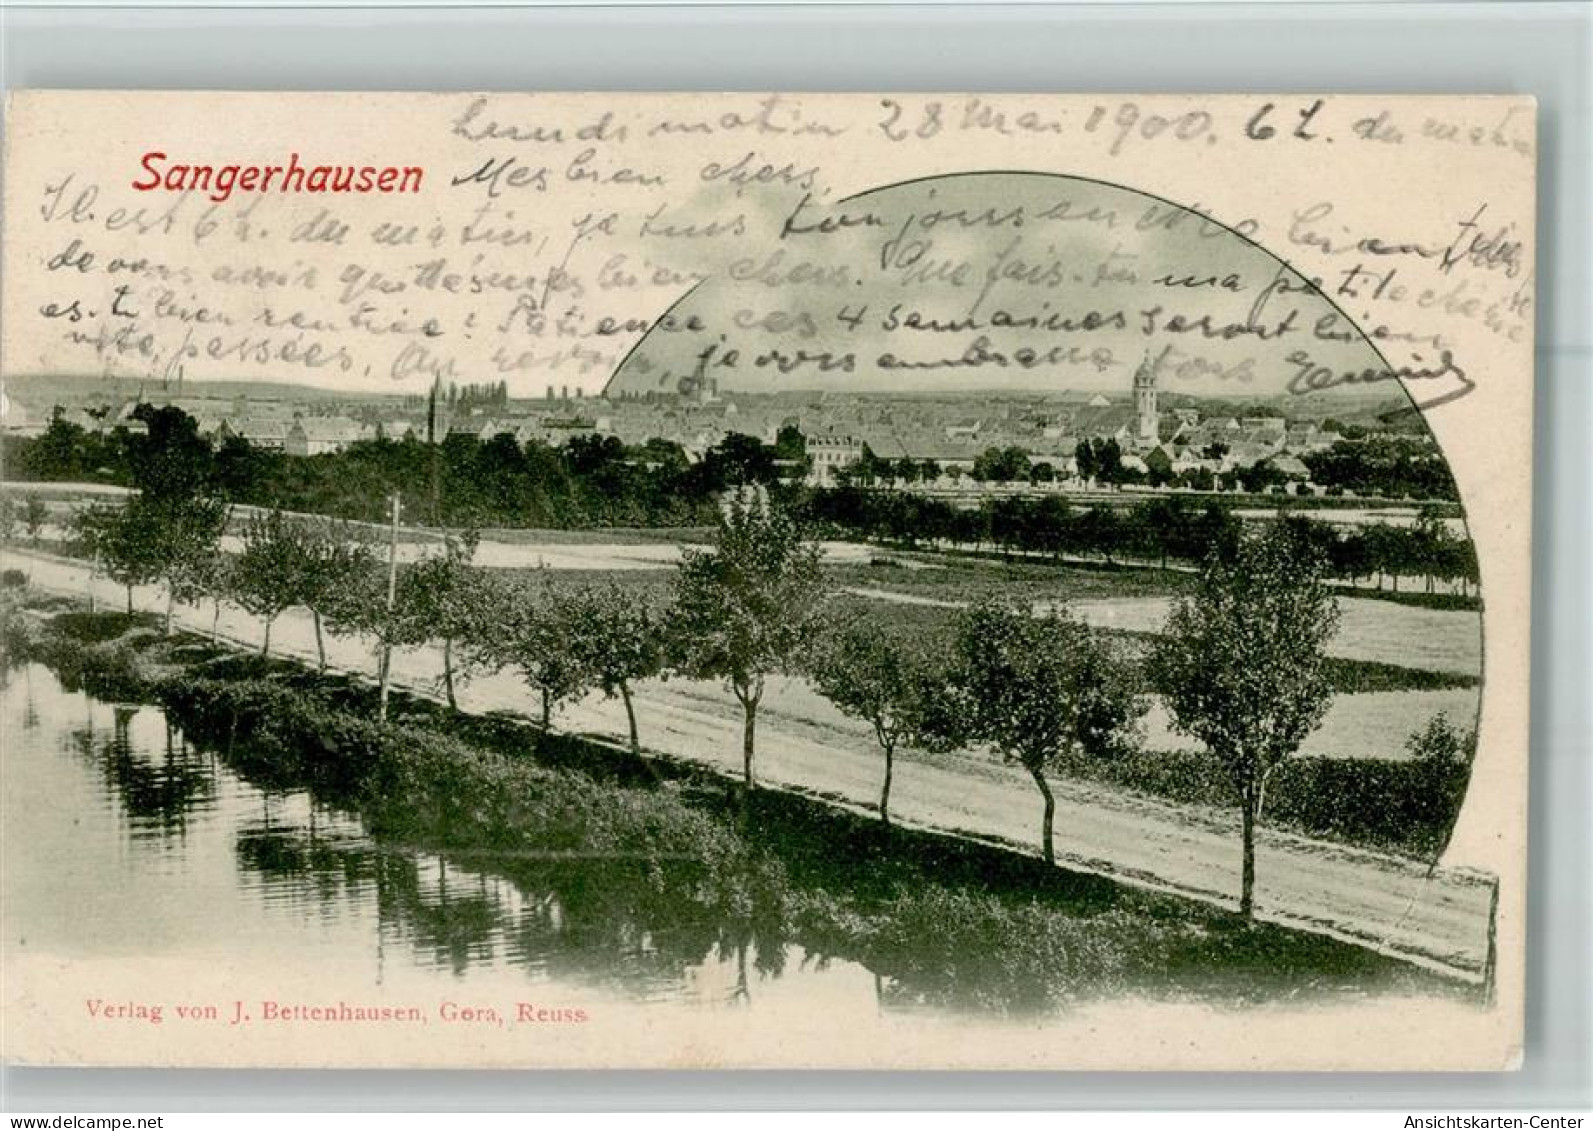 Lundi matin 28 Mai 1900. 6 h. du matin
Sangerhausen
Mes bien chers,
Il est 6 h. du matin, je suis toujours en bien
de vous avoir quittés mes bien chers. Que fais-tu ma petite chérie
es-tu bien rentrée? Patience ces 4 semaines seront bien
vite passées. Au revoir, je vous embrasse tous
Verlag von J. Bettenhausen, Gera, Reuss
delcampe.net
Ansichtskarten-Center